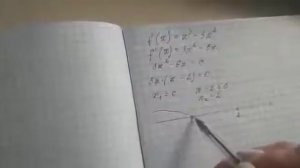 f'(x) = x³ - 3x²
f'(x) = 3x² - 6x
3x² - 6x = 0
3x · (x - 2) = 0
x₁ = 0 x - 2 = 0
x₂ = 2
2